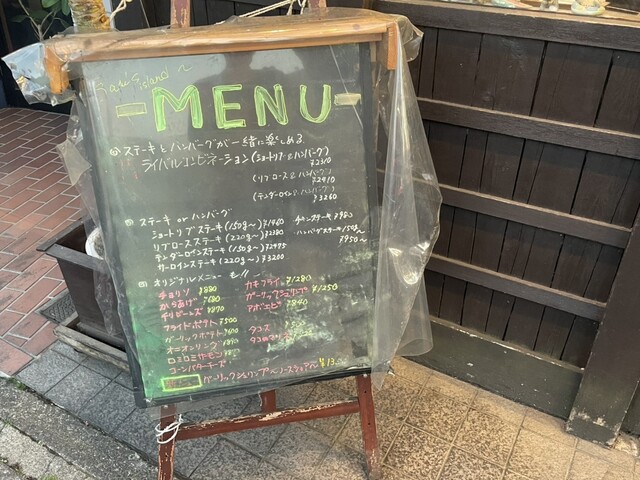 island
MENU
ステーキとハンバーグが一緒に楽しめる
ライバルコンビネーション(ショートリブ&ハンバーグ)
¥2310
(リブロース&ハンバーグ)
¥2910
(テンダーロイン&ハンバーグ)
¥3260
ステーキ or ハンバーグ
ショートリブステーキ(150g〜)¥1980 チキンステーキ ¥980
リブロースステーキ(220g〜)¥2380 ハンバーグステーキ150g〜
テンダーロインステーキ(150g〜)¥2995 ¥950〜
サーロインステーキ(220g〜)¥3200
オリジナルメニュー も!!
チョリソ ¥880 カキフライ ¥1280
からあげ ¥680 ガーリックシュリンプ ¥1250
チリビーンズ ¥970 アボエビ ¥840
フライドポテト ¥500
ガーリックポテト ¥600 タコス
オニオンリング タコ
ロミロミサーモン
コーンバターチーズ
ガーリックシュリンプ